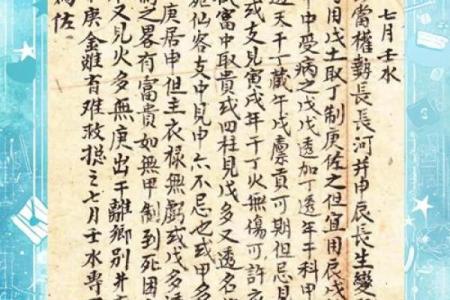 七月壬水
當權勢長長河并申辰長生變
用戊土取丁制庚佐之但宜用辰戌
中受病之戊戊透加丁透年干科甲
透天干丁藏午戌稟貢可期但忌見
或支見寅戌年干丁火無傷可許衣
富中取貴或四柱見戊多又透名
仙客支中見申亦不忌也或甲多
庚居申但主衣祿無虧或戊多透
制之畧有富貴如無甲制到死困
又見火多無庚出干離鄉別井
庚金雖有难救總之七月壬水專
為佐